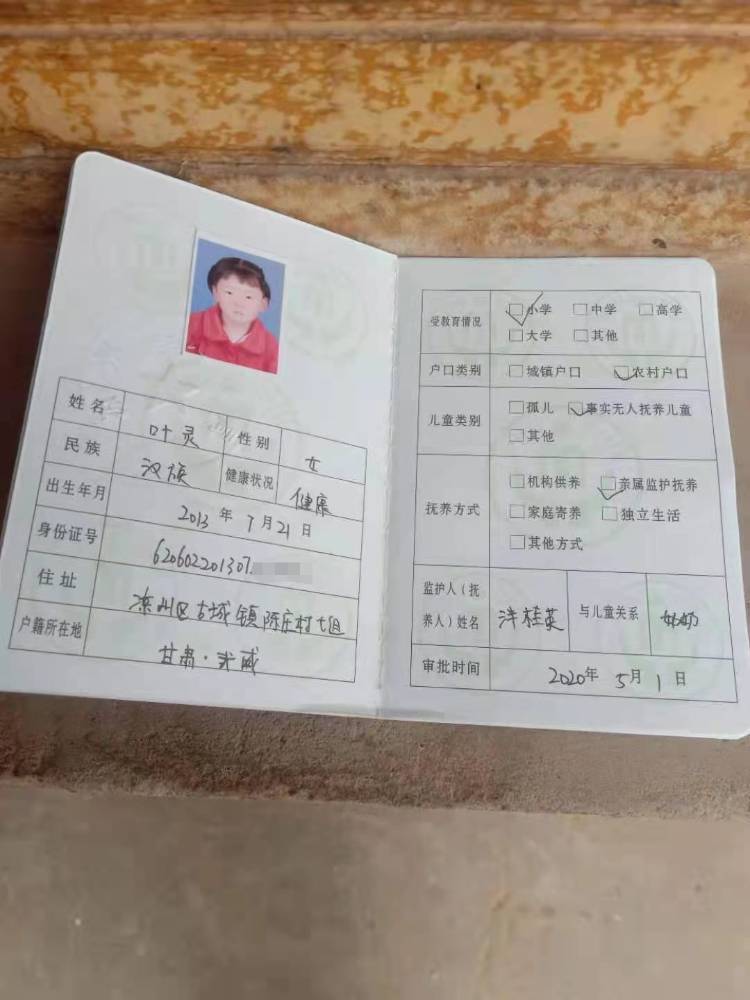 姓名 叶灵 性别 女
民族 汉族 健康状况 健康
出生年月 2013年7月21日
身份证号 620602201307
住址 凉州区古城镇陈庄村七组
户籍所在地 甘肃·武威
受教育情况 □小学 □中学 □高学
□大学 □其他
户口类别 □城镇户口 □农村户口
儿童类别 □孤儿 □事实无人抚养儿童
□其他
抚养方式 □机构供养 □亲属监护抚养
□家庭寄养 □独立生活
□其他方式
监护人(抚
养人)姓名 桂英 与儿童关系 奶奶
审批时间 2020年5月1日